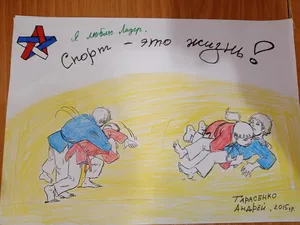 Я люблю Лидер.
Спорт - это жизнь!
ТАРАСЕНКО
АНДРЕЙ, 2015 гр.